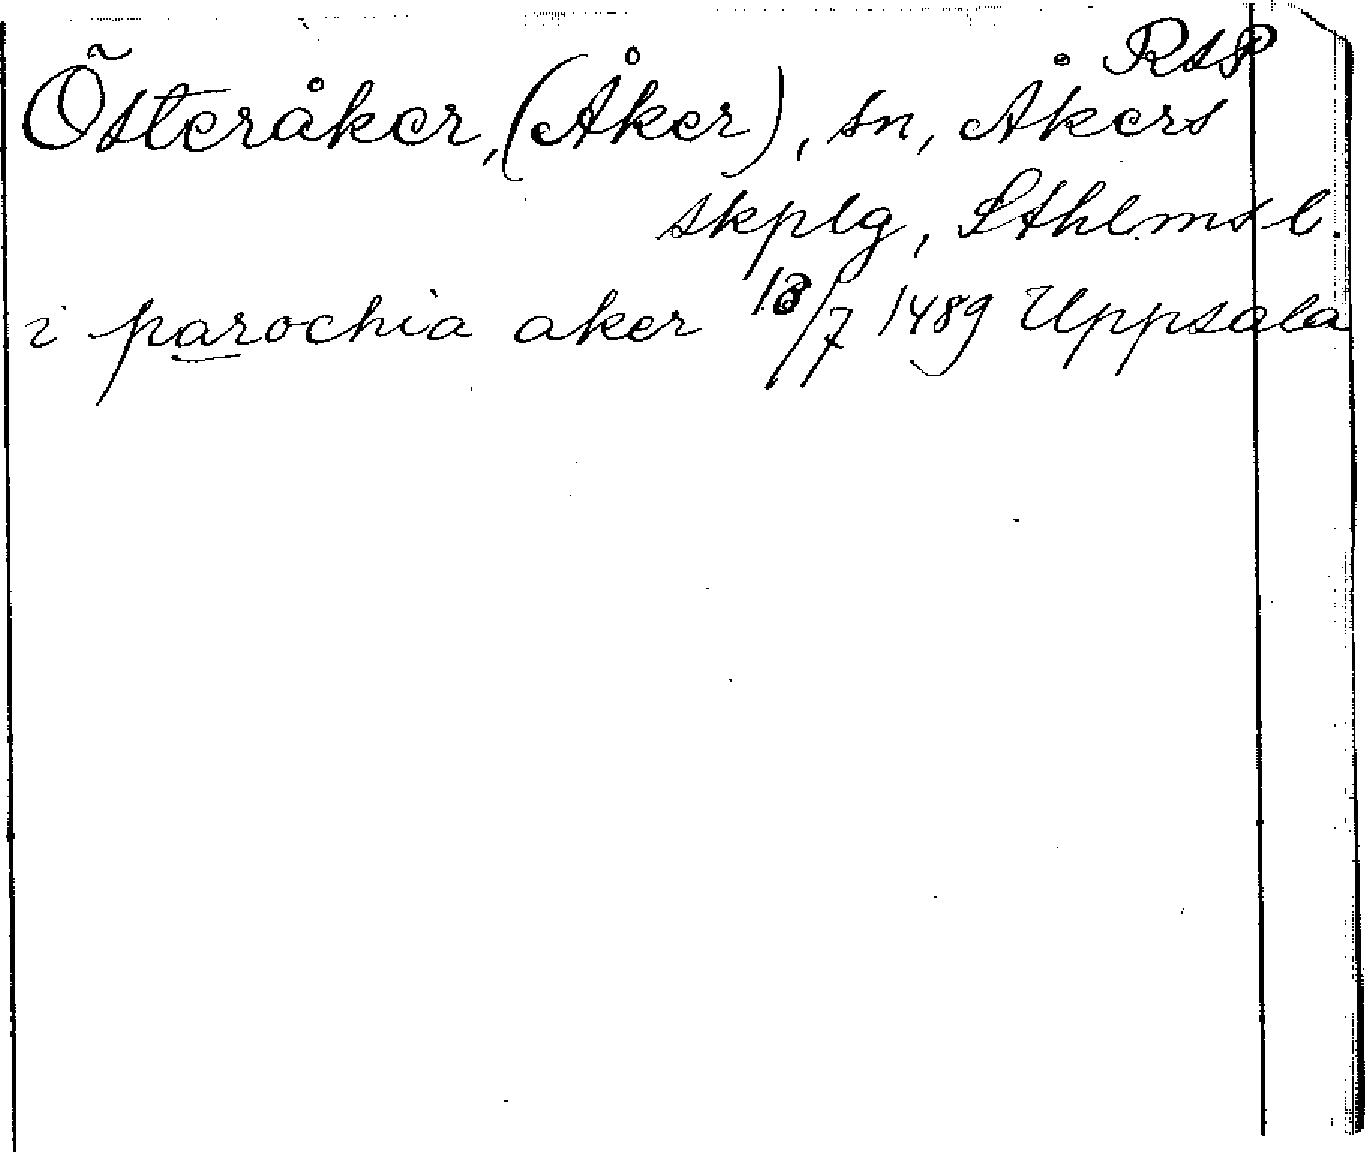 RAP
Österåker, (Åker), sn, Åkers
skplg, Sthlms l.
i parochia aker 13/7 1489 Uppsala